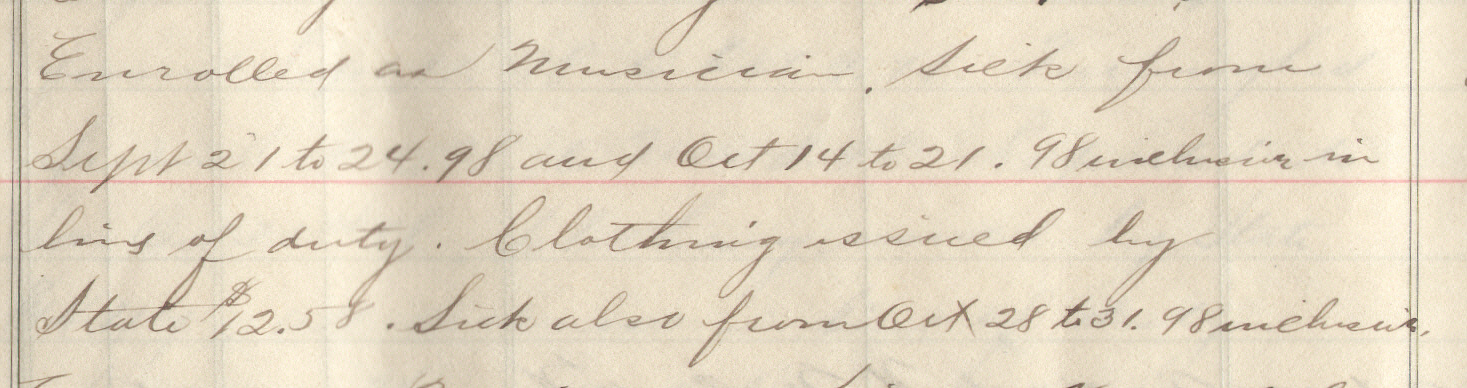 Enrolled as Musician. Sick from
Sept 21 to 24.98 and Oct 14 to 21.98 inclusive in
line of duty. Clothing issued by
State $12.58. Sick also from Oct 28 to 31.98 inclusive.